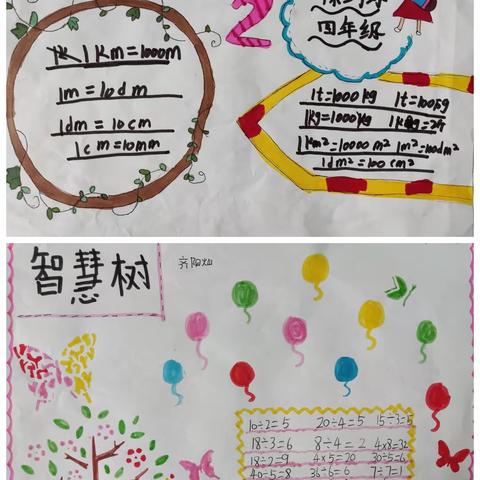 1Km=1000M
1m=10dm
1dm=10cm
1cm=10mm
2
四年级
1t=1000kg 1t=100kg
1kg=1000kg
1km²=10000m² 1m²=100dm²
1dm²=100cm²
智慧树
齐阳灿
10÷2=5 20÷4=5 15÷3=5
18÷3=6 8÷4=2 4×8=32
18÷2=9 4×5=20 30÷5=6
40÷5=8 36÷6=6 7÷7=1